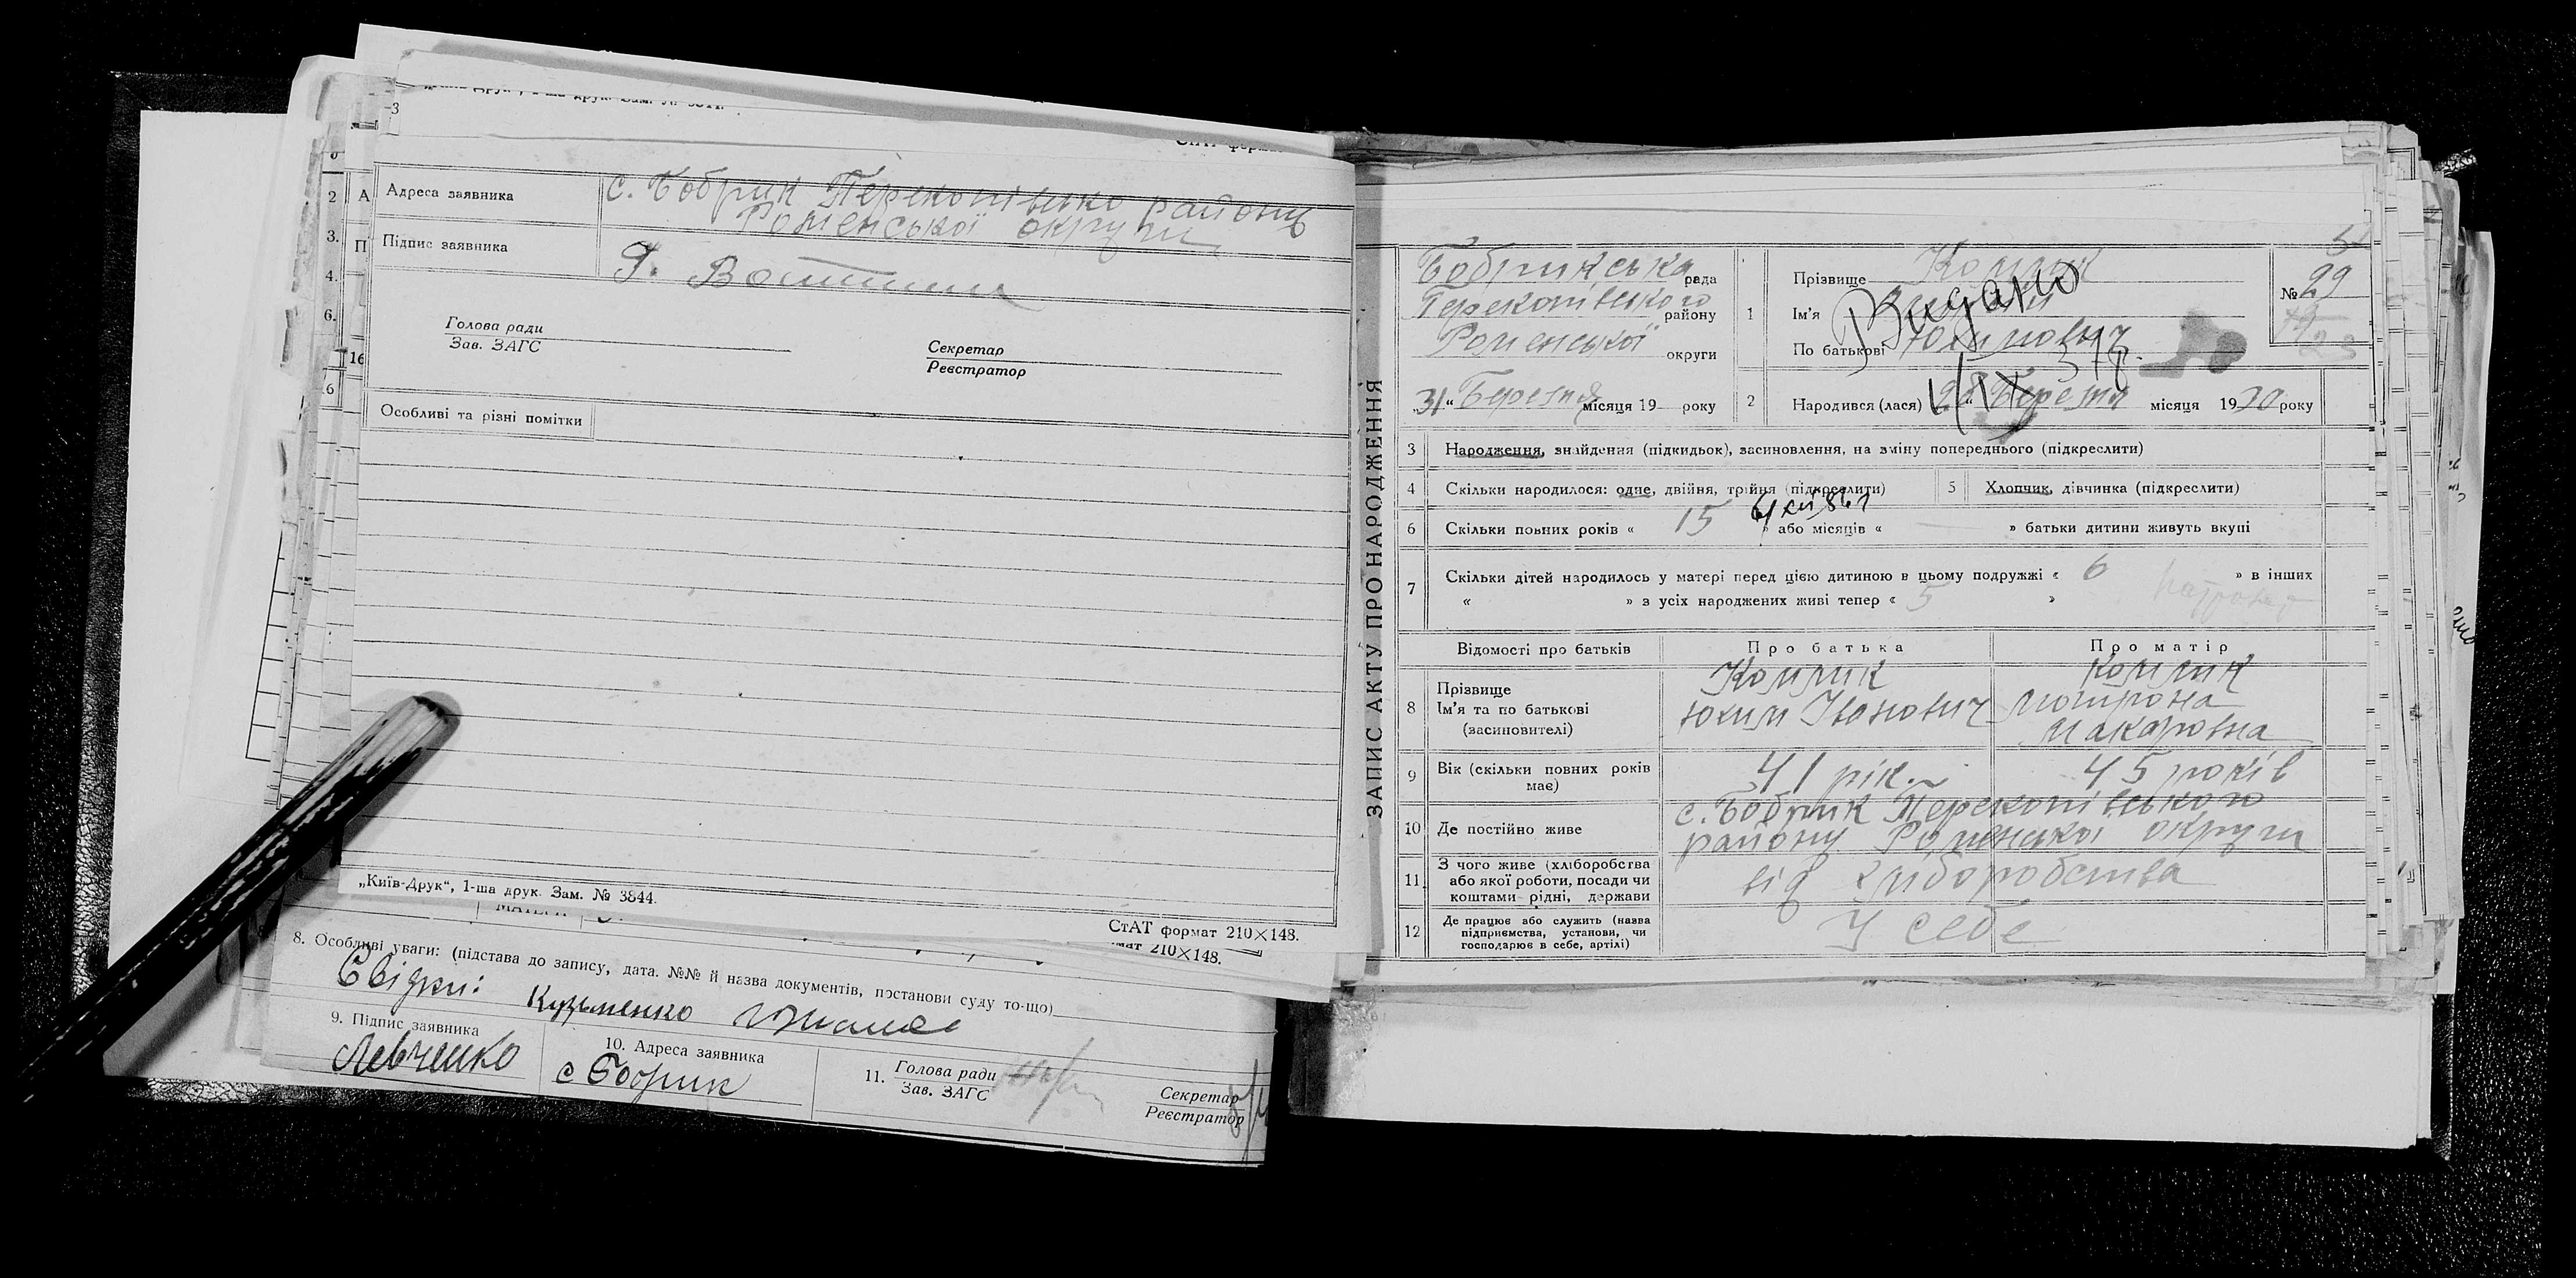 3
2
3.
4.
6.
16
6
А
П
Адреса заявника
с. Бобрик Перекопівсько району
Роменської округи
Підпис заявника
Голова ради
Зав. ЗАГС
Секретар
Реєстратор
Особливі та різні помітки
„Київ-Друк“, 1-ша друк. Зам. № 3844.
СтАТ формат 210×148.
мат 210×148.
8. Особливі уваги: (підстава до запису, дата. №№ й назва документів, постанови суду то-що)
Свідки: Кузьменко
9. Підпис заявника
Левченко
10. Адреса заявника
с Бобрик
11. Голова ради
Зав. ЗАГС
Секретар
Реєстратор
ЗАПИС АКТУ ПРО НАРОДЖЕННЯ
Бобрикська рада
Перекопівського району
Роменської округи
„31“ Березня місяця 19 року
1
Прізвище
Ім'я
По батькові Юхимович
Видано
№ 29
2
Народився (лася) „28“ Березня місяця 1930 року
3
Народження, знайдення (підкидьок), засиновлення, на зміну попереднього (підкреслити)
4
Скільки народилося: одне, двійня, трійня (підкреслити)
5
Хлопчик, дівчинка (підкреслити)
6
Скільки повних років « 15 » або місяців « — » батьки дитини живуть вкупі
7
Скільки дітей народилось у матері перед цією дитиною в цьому подружжі « 6 » в інших
« » з усіх народжених живі тепер « 5 »
Відомості про батьків
Про батька
Про матір
8
Прізвище
Ім'я та по батькові
(засиновителі)
Комлик
Юхим Іванович
Комлик
Мотрона
Макаровна
9
Вік (скільки повних років
має)
41 рік.
45 років
10
Де постійно живе
с. Бобрик Перекопівського
району Роменської округи
11
З чого живе (хліборобства
або якої роботи, посади чи
коштами рідні, держави
від хліборобства
12
Де працює або служить (назва
підприємства, установи, чи
господарює в себе, артілі)
У себе